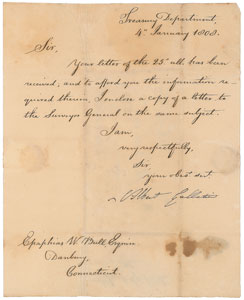 Treasury Department
4th January 1808.
Sir.
Your letter of the 25th ulto has been
received; and to afford you the information re
quired therein, I enclose a copy of a letter to
the Surveyor General on the same subject.
I am,
very respectfully,
Sir,
your obdt servt
Albert Gallatin
W. Bull Esquire
Danbury,
Connecticut.